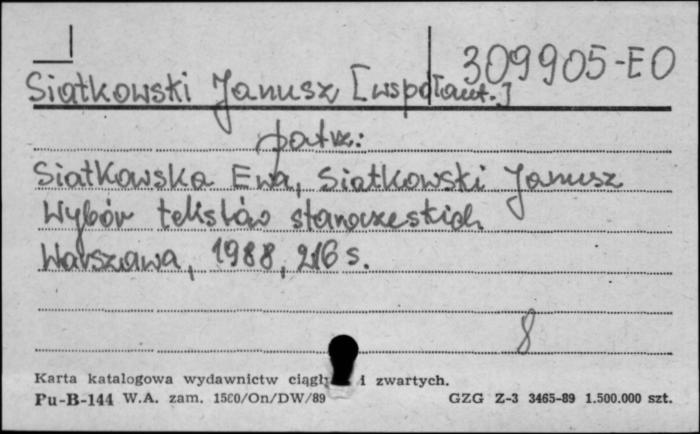 309905-EO
Siatkowski Janusz [współaut.]
patrz:
Siatkowska Ewa, Siatkowski Janusz
Wybór tekstów staroczeskich
Warszawa, 1988, 216 s.
8
Karta katalogowa wydawnictw ciągły i zwartych.
Pu-B-144 W.A. zam. 1500/On/DW/89 GZG Z-3 3465-89 1.500.000 szt.